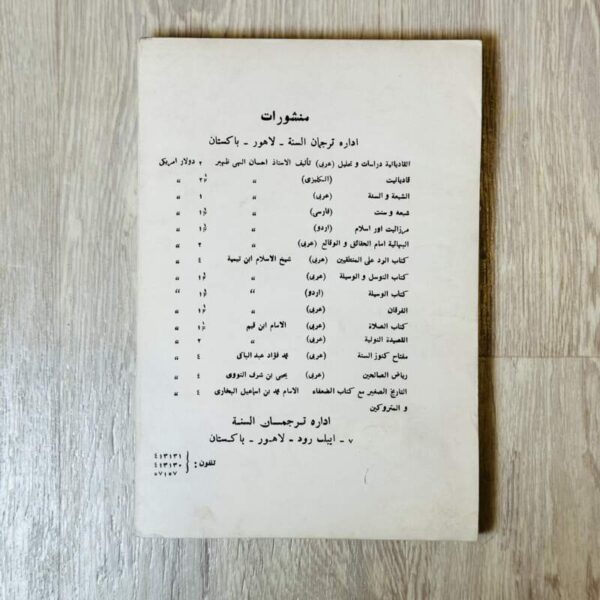 منشورات
اداره ترجمان السنة - لاهور - باكستان
القاديانية دراسات و تحليل (عربى) تأليف الاستاذ احسان الهى ظهير ٢ دولار امريكى
قاديانيت (انكليزى) " ٢½ "
الشيعة و السنة (عربى) " ١ "
شيعه و سنت (فارسى) " ١½ "
مرزائيت اور اسلام (اردو) " ١½ "
البهائية امام الحقائق و الوقائع (عربى) " ٢ "
كتاب الرد على المنطقيين (عربى) شيخ الاسلام ابن تيمية ٤ "
كتاب التوسل و الوسيلة (عربى) " ١½ "
كتاب الوسيلة (اردو) " ١½ "
الفرقان (عربى) " ١½ "
كتاب الصلاة (عربى) الامام ابن قيم ١½ "
القصيدة النونية (عربى) " ٢ "
مفتاح كنوز السنة (عربى) محمد فؤاد عبد الباقى ٤ "
رياض الصالحين (عربى) يحيى بن شرف النووى ٤ "
التاريخ الصغير مع كتاب الضعفاء الامام محمد بن اسماعيل البخارى ٤ "
و المتروكين
اداره ترجمــان السنــة
٧ - ايبك رود - لاهـور - باكستان
تلفون : ٤١٣١٣١
٤١٣١٣٠
٥٧١٥٧